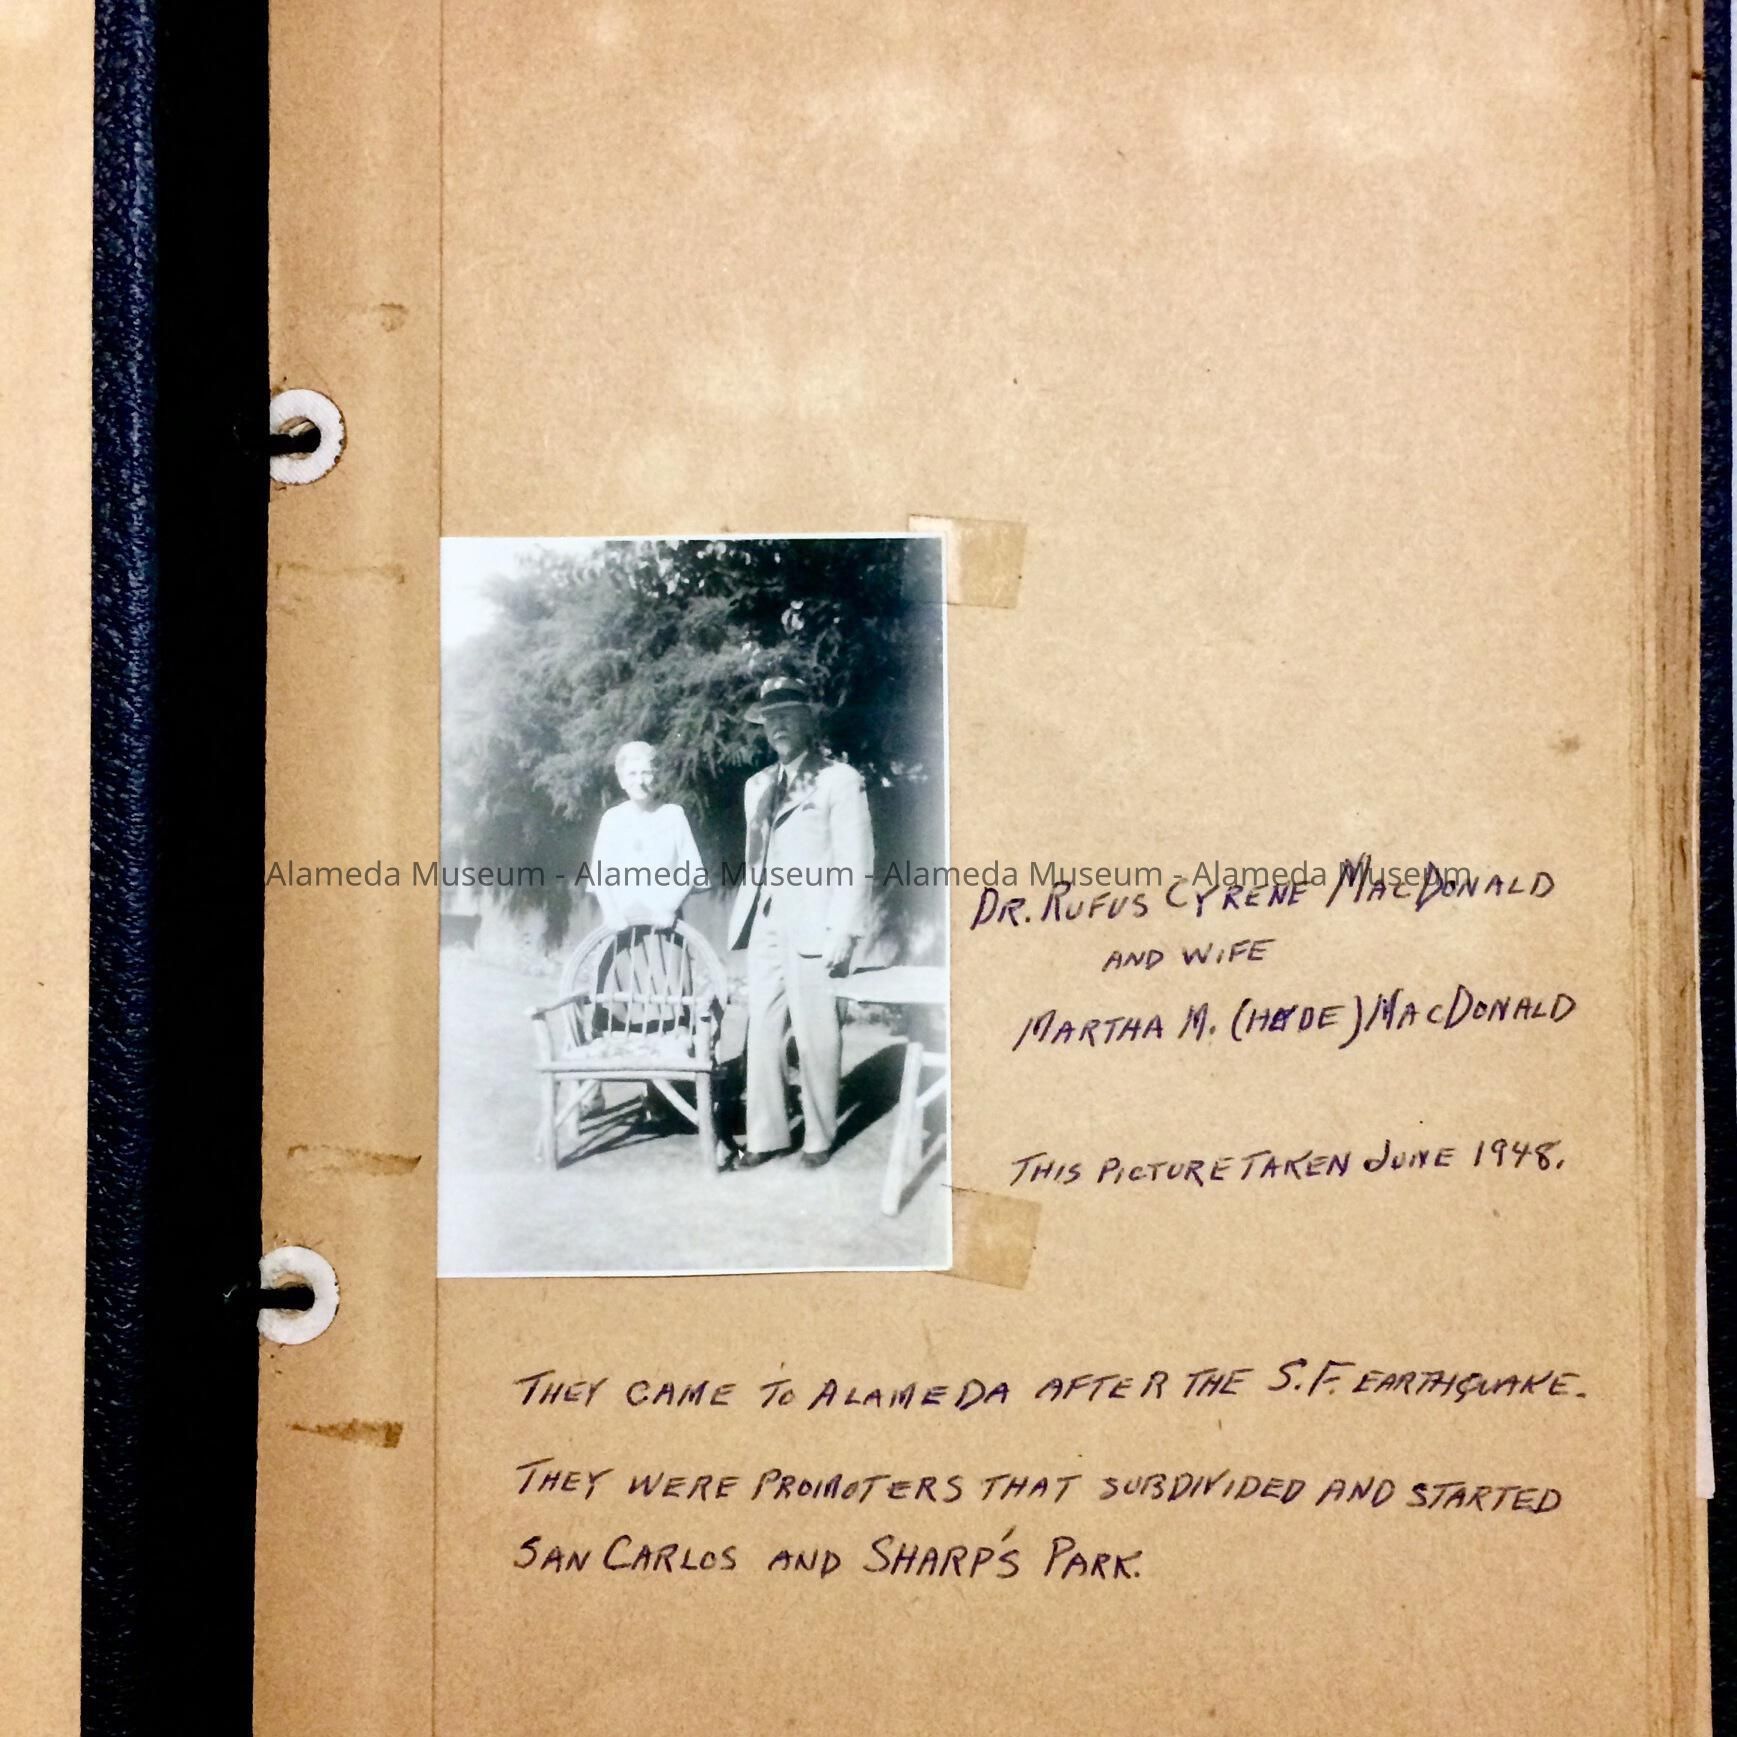 Alameda Museum - Alameda Museum - Alameda Museum - Alameda Museum
DR. RUFUS CYRENE MACDONALD
AND WIFE
MARTHA M. (HYDE) MACDONALD
THIS PICTURE TAKEN JUNE 1948.
THEY CAME TO ALAMEDA AFTER THE S.F. EARTHQUAKE.
THEY WERE PROMOTERS THAT SUBDIVIDED AND STARTED
SAN CARLOS AND SHARP'S PARK.